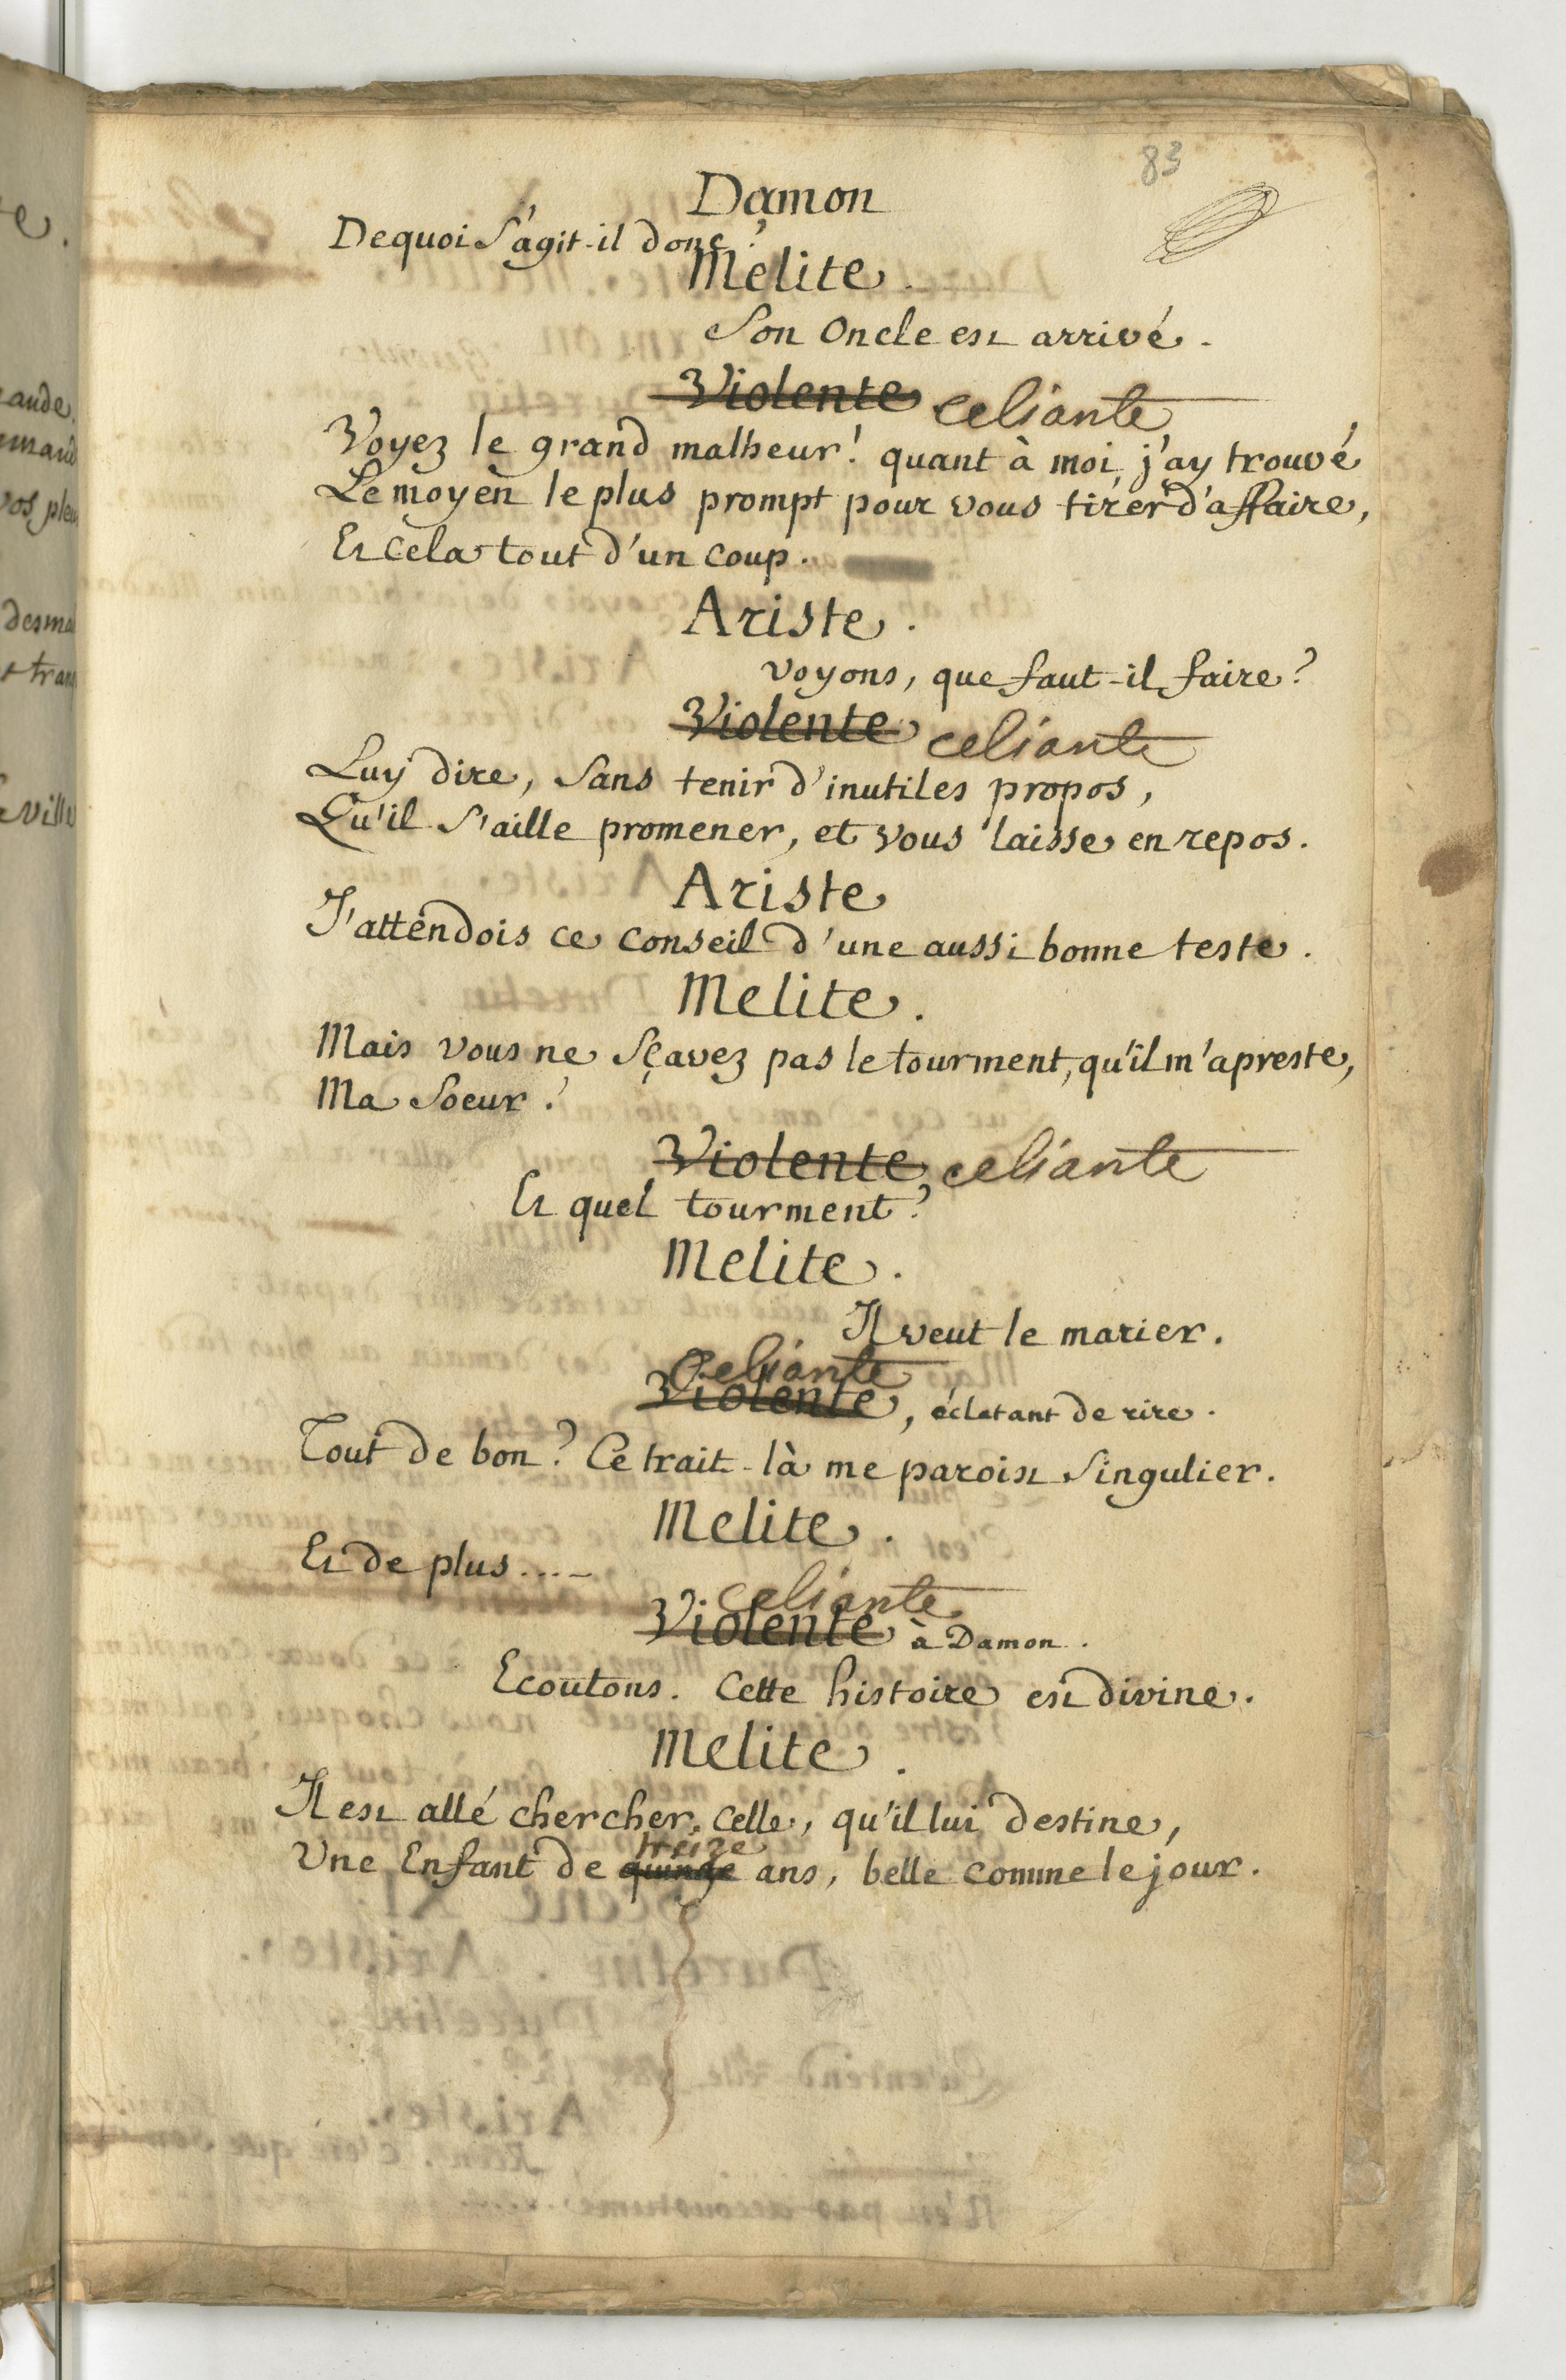 83
Damon
Dequoi s'agit-il donc?
Melite.
Son Oncle est arrivé.
Violente celiante
Voyez le grand malheur! quant à moi, j'ay trouvé
Le moyen le plus prompt pour vous tirer d'affaire,
Et cela tout d'un coup.
Ariste.
voyons, que faut-il faire?
Violente celiante
Luy dire, sans tenir d'inutiles propos,
Qu'il s'aille promener, et vous laisse en repos.
Ariste
J'attendois ce conseil d'une aussi bonne teste.
Melite.
Mais vous ne sçavez pas le tourment, qu'il m'apreste,
Ma soeur!
Violente, celiante
Et quel tourment?
Melite.
Il veut le marier.
Celiante
Violente, éclatant de rire.
Tout de bon? Ce trait-là me paroist singulier.
Melite.
Et de plus....
celiante
Violente à Damon.
Ecoutons. Cette histoire est divine.
Melite.
Il est allé chercher celle, qu'il lui destine,
treize
Une Enfant de quinze ans, belle comme le jour.